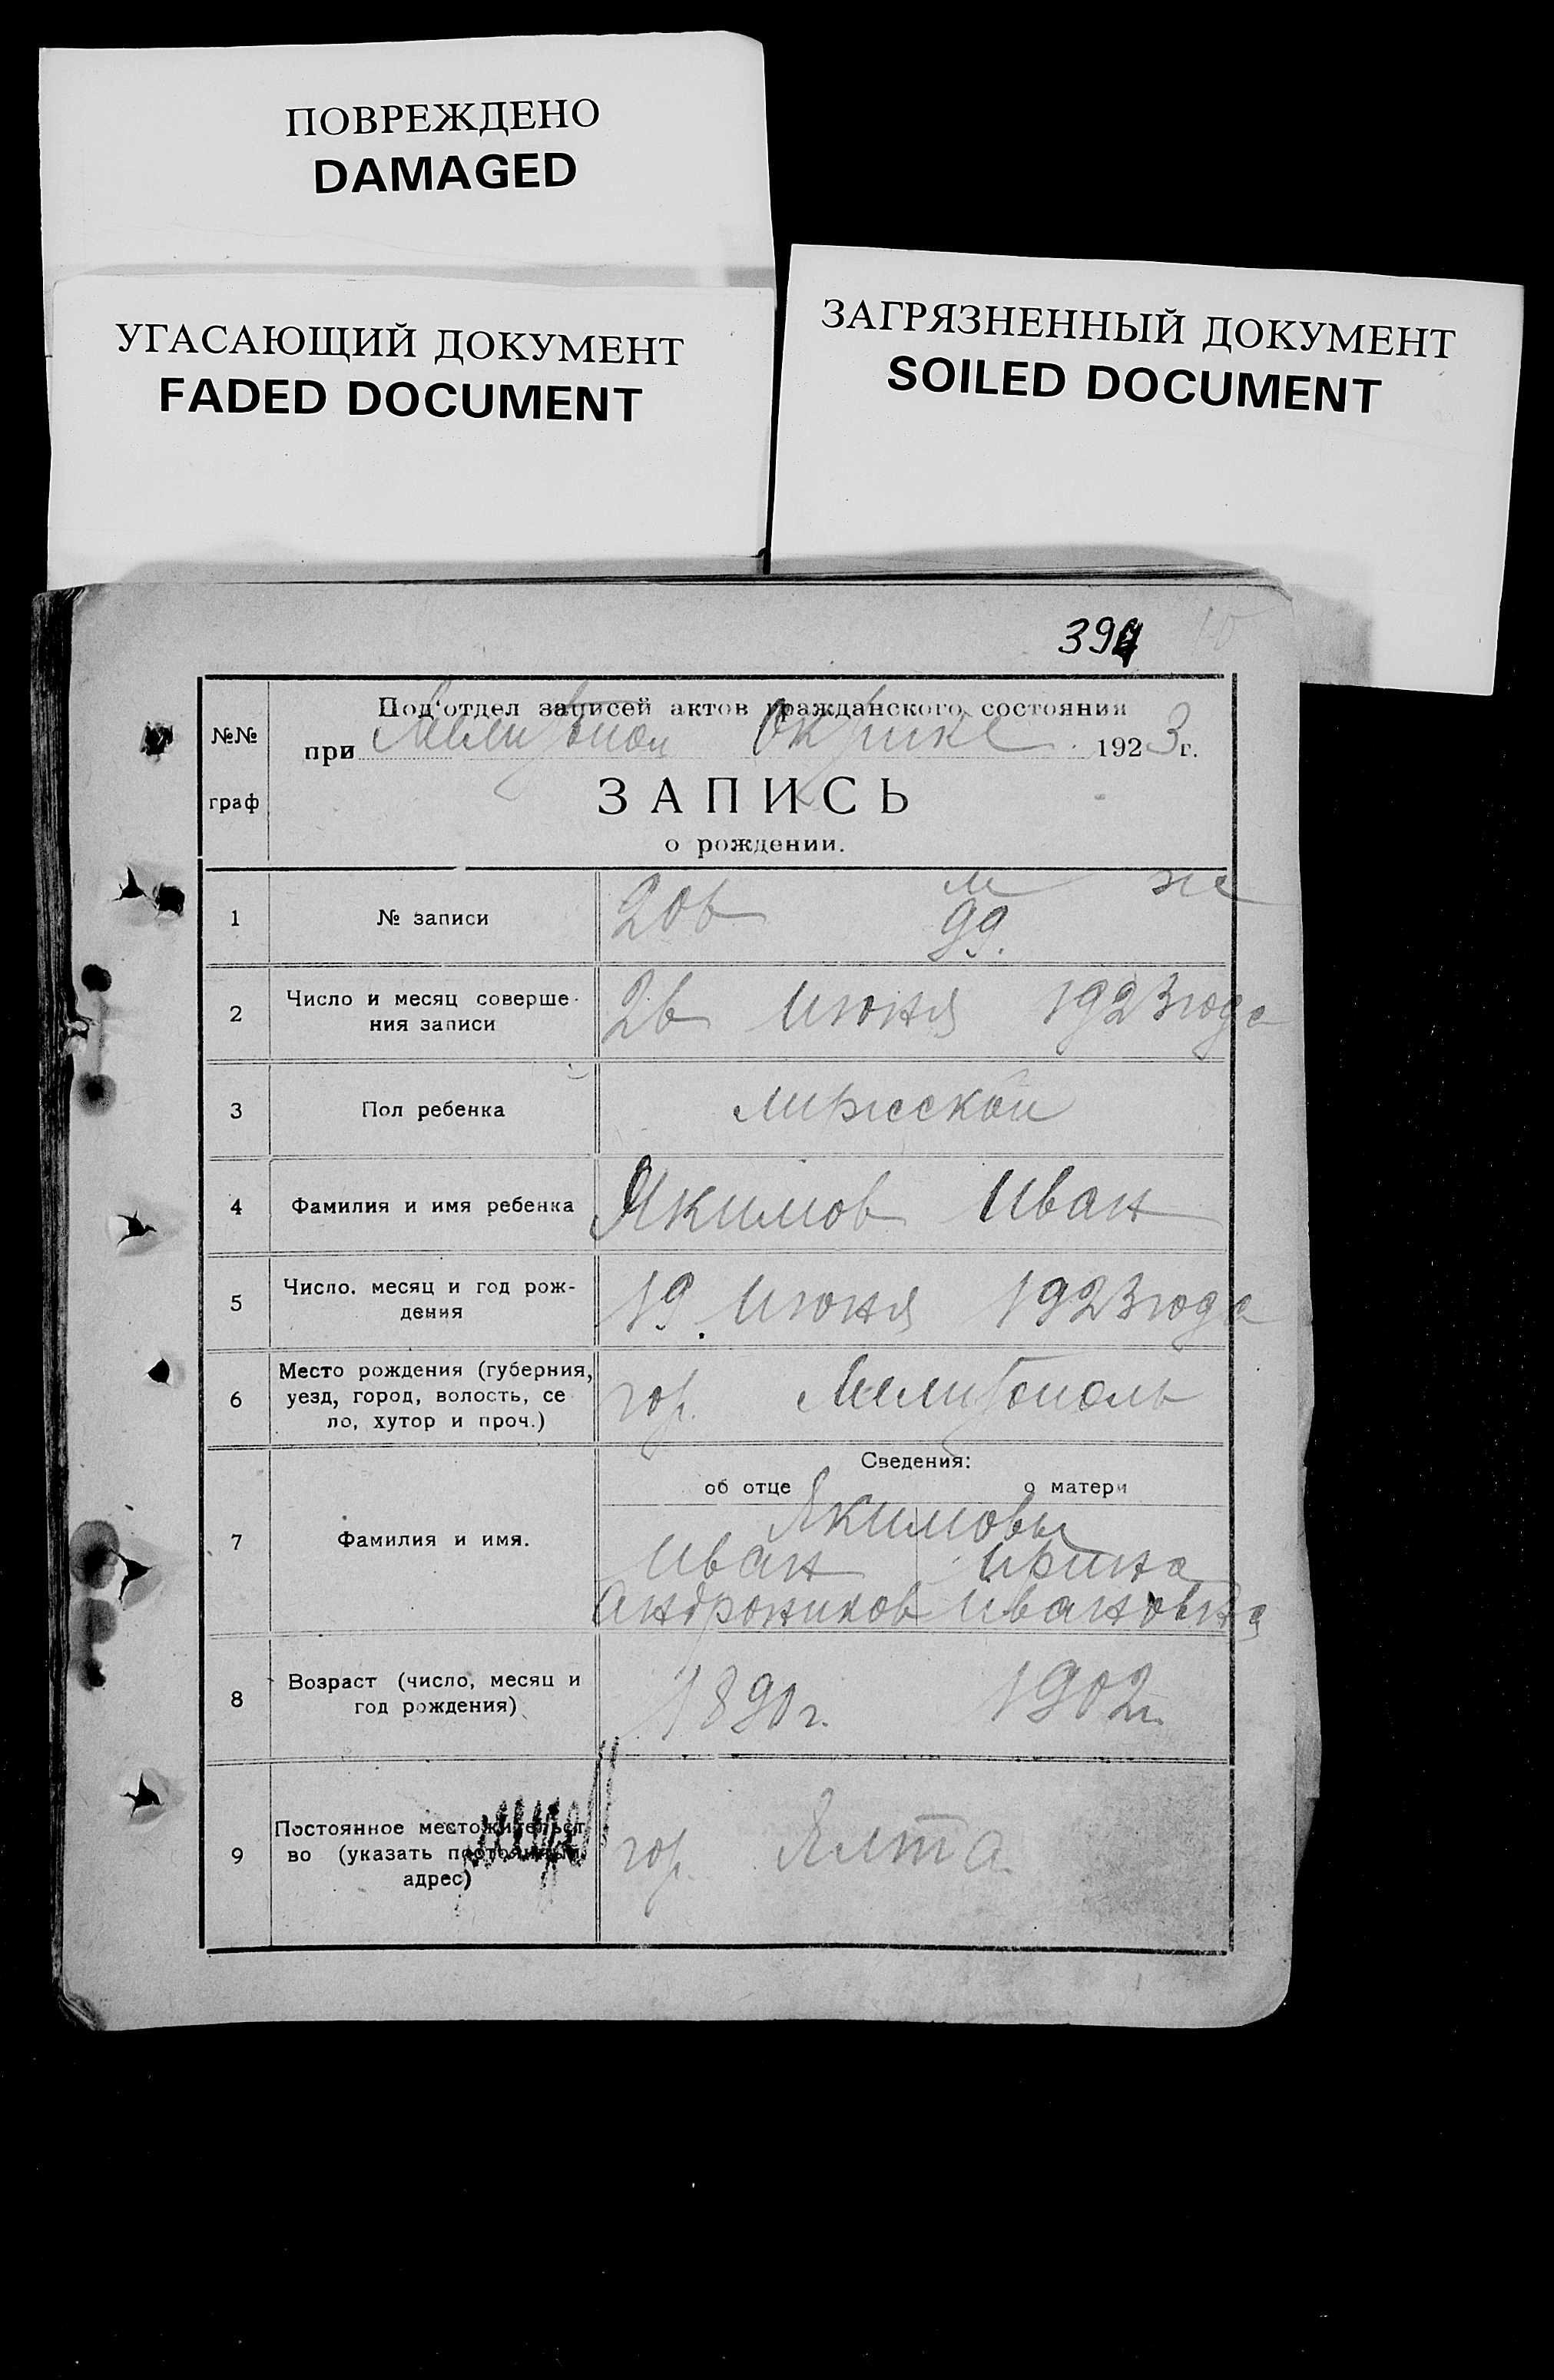 ПОВРЕЖДЕНО
DAMAGED
УГАСАЮЩИЙ ДОКУМЕНТ
FADED DOCUMENT
ЗАГРЯЗНЕННЫЙ ДОКУМЕНТ
SOILED DOCUMENT
№№
граф
Под'отдел записей актов гражданского состояния
при Мелитопол 1923 г.
ЗАПИСЬ
о рождении.
м ж
1 № записи 206 99.
2 Число и месяц соверше-
ния записи
26 июня 1923 года
3 Пол ребенка мужской
4 Фамилия и имя ребенка Якимов Иван
5 Число. месяц и год рож-
дения
19. июня 1923 года
6 Место рождения (губерния,
уезд, город, волость, се
ло, хутор и проч.)
гор. Мелитополь
Сведения:
об отце о матери
7 Фамилия и имя.
Якимовы
Иван Ирина
Андроников Ивановна
8 Возраст (число, месяц и
год рождения)
1890 г. 1902 г.
9 Постоянное местожительст
во (указать постоянный
адрес)
гор. Ялта